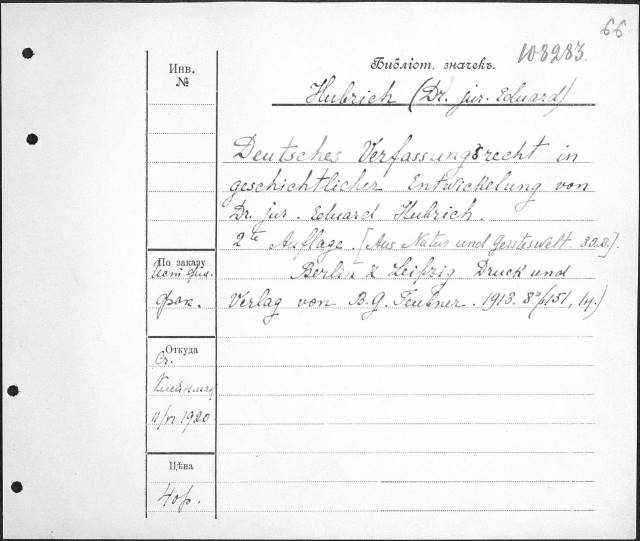 66
108283.
Библіот. значекъ.
Инв.
№
Hubrich (Dr. jur. Eduard)
Deutsches Verfassungsrecht in
geschichtlicher Entwickelung von
Dr. jur. Eduard Hubrich.
2te Auflage. [Aus Natur und Geisteswelt. 80.B].
По заказу
Ист. фил.
фак.
Berlin & Leipzig Druck und
Verlag von B. G. Teubner. 1913. 8° (151, 1
Откуда
Ст.
11/VI 1920
Цѣна
40р.